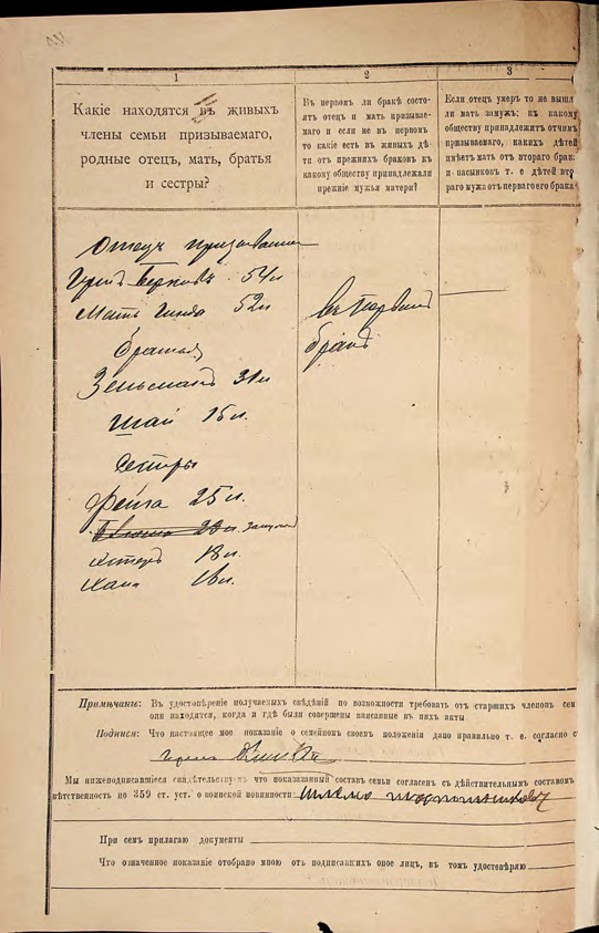 1
Какіе находятся въ живыхъ
члены семьи призываемаго,
родные отецъ, мать, братья
и сестры?
2
Въ первомъ ли бракѣ состо-
ятъ отецъ и мать призывае-
маго и если не въ первомъ
то какіе есть въ живыхъ дѣ-
ти отъ прежнихъ браковъ къ
какому обществу принадлежали
прежніе мужья матери?
3
Если отецъ умеръ то не вышла
ли мать замужъ; къ какому
обществу принадлежитъ отчимъ
призываемаго, какихъ дѣтей
имѣетъ мать отъ втораго брак
и пасынковъ т. е дѣтей вто
раго мужа отъ перваго его брака
Отецъ
Берковъ 54 л
Мать 52 л
Братья
Зельманъ 31 л
Шая 15 л.
Сестры
Фейга 25 л.
Эстеръ 18 л.
Хана
въ первомъ
бракѣ
Примѣчаніе: Въ удостовѣреніе получаемыхъ свѣдѣній по возможности требовать отъ старшихъ членовъ сем
они находятся, когда и гдѣ были совершены вписанные въ нихъ акты
Подписи: Что настоящее мое показаніе о семейномъ своемъ положеніи дано правильно т. е. согласно с
Мы нижеподписавшіеся свидѣтельствуемъ что показанный составъ семьи согласенъ съ дѣйствительнымъ составомъ
вѣтственность по 359 ст. уст. о воинской повинности:
При семъ прилагаю документы
Что означенное показаніе отобрано мною отъ подписавшихъ оное лицъ, въ томъ удостовѣряю